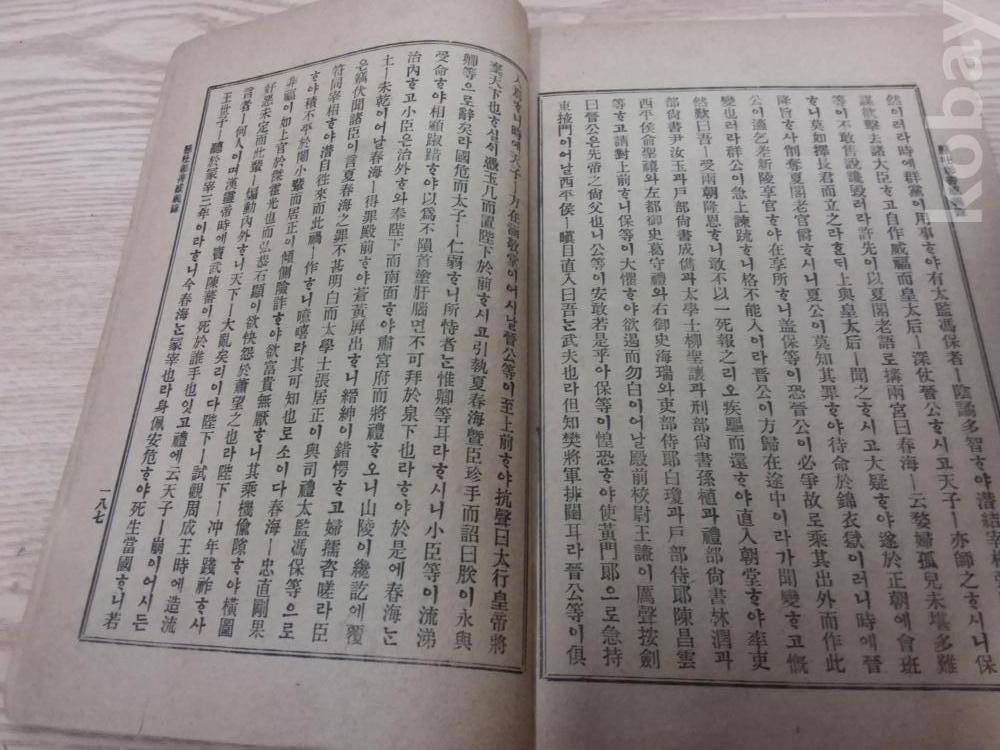 然이러라時에群黨이用事ᄒᆞ야有太監馮保者ㅣ陰譎多智ᄒᆞ야潛結宰
謀欲擊去諸大臣ᄒᆞ고自作威福而皇太后ㅣ深仗晉公ᄒᆞ시고天子ㅣ亦師之ᄒᆞ시니保
等이不敢售說讒毁러라許先이以夏閣老語로搆兩宮曰春海ㅣ云嫠婦孤兒未堪多難
ᄒᆞ니莫如擇長君而立之라ᄒᆞᆫᄃᆡ上與皇太后ㅣ聞之ᄒᆞ시고大疑ᄒᆞ야遂於正朝에會班
降旨ᄒᆞ사削奪夏閣老官爵ᄒᆞ시니夏公이莫知其罪ᄒᆞ야待命於錦衣獄이러니時에晉
公이適乙差新陵享官ᄒᆞ야在享所ᄒᆞ니盖保等이恐晉公이必爭故로乘其出外而作此
變也러라群公이急上諫跣ᄒᆞ니格不能入이라晉公이方歸在途中이라가聞變ᄒᆞ고慨
然歎曰吾ㅣ受兩朝隆恩ᄒᆞ니敢不以一死報之리오疾驅而還ᄒᆞ야直入朝堂ᄒᆞ야率吏
部尙書尹汝玉과戶部尙書成僑와太學士柳聖讓과刑部尙書孫植과禮部尙書林潤과
西平侯兪聖禧와左都御史葛守禮와右御史海瑞와吏部侍郞白瓊과戶部侍郞陳昌雲
等ᄒᆞ고請對上前ᄒᆞ니保等이大懼ᄒᆞ야欲遏而勿白이어날殿前校尉王謙이厲聲按劍
曰晉公은先帝之尙父也니公等이安敢若是乎아保等이惶恐ᄒᆞ야使黃門郞으로急持
東掖門이어날西平侯ㅣ瞋目直入曰吾ᄂᆞᆫ武夫也라但知樊將軍排闥耳라晉公等이俱
入ᄒᆞ니時에天子ㅣ方在이어시날晉公等이至上前ᄒᆞ야抗聲曰大行皇帝將
棄天下也ᄒᆞ실ᄉᆡ憑玉几而置陛下於前ᄒᆞ시고引執夏春海曁臣珍手而詔曰朕이永與
卿等으로辭矣라國危而太子ㅣ仁弱ᄒᆞ니所恃者ᄂᆞᆫ惟卿等耳라ᄒᆞ시니小臣等이流涕
受命ᄒᆞ야相顧踧踖ᄒᆞ야以爲不隕首塗肝腦면不可拜於泉下也라ᄒᆞ야於是에春海ᄂᆞᆫ
治內ᄒᆞ고小臣은治外ᄒᆞ와奉陛下而南面ᄒᆞ야肅宮府而將禮ᄒᆞ오니山陵이纔訖에覆
土ㅣ未乾이어날春海ㅣ得罪殿前ᄒᆞ야蒼黃屏出ᄒᆞ니縉紳이錯愕ᄒᆞ고婦孺咨嗟라臣
은竊伏聞諸臣이言夏春海之罪不甚明白而太學士張居正이與司禮太監馮保等으로
符同宰相ᄒᆞ야潛自往來而此禍ㅣ作ᄒᆞ니噫嘻라其可知也로소이다春海ㅣ忠直剛果
ᄒᆞ야積不平於閹小輩而居正이傾側險詐ᄒᆞ야欲富貴無厭ᄒᆞ니其乘機偸隙ᄒᆞ야橫圖
非福이如上官於傑霍光也而弘恭石顯이欲快怨於蕭望之也라陛下ㅣ冲年踐祚ᄒᆞ사
好惡未定而此輩ㅣ煽動內外ᄒᆞ니天下ㅣ大亂矣리이다陛下ㅣ試觀周成王時에造流
言者ㅣ何人이며漢靈帝時에竇武陳蕃이死於誰手也잇고禮에云天子ㅣ崩이어시든
王世子ㅣ聽於冢宰三年이라ᄒᆞ니今春海ᄂᆞᆫ冢宰也라身佩安危ᄒᆞ야死生當國ᄒᆞ니若
一八七
kobay